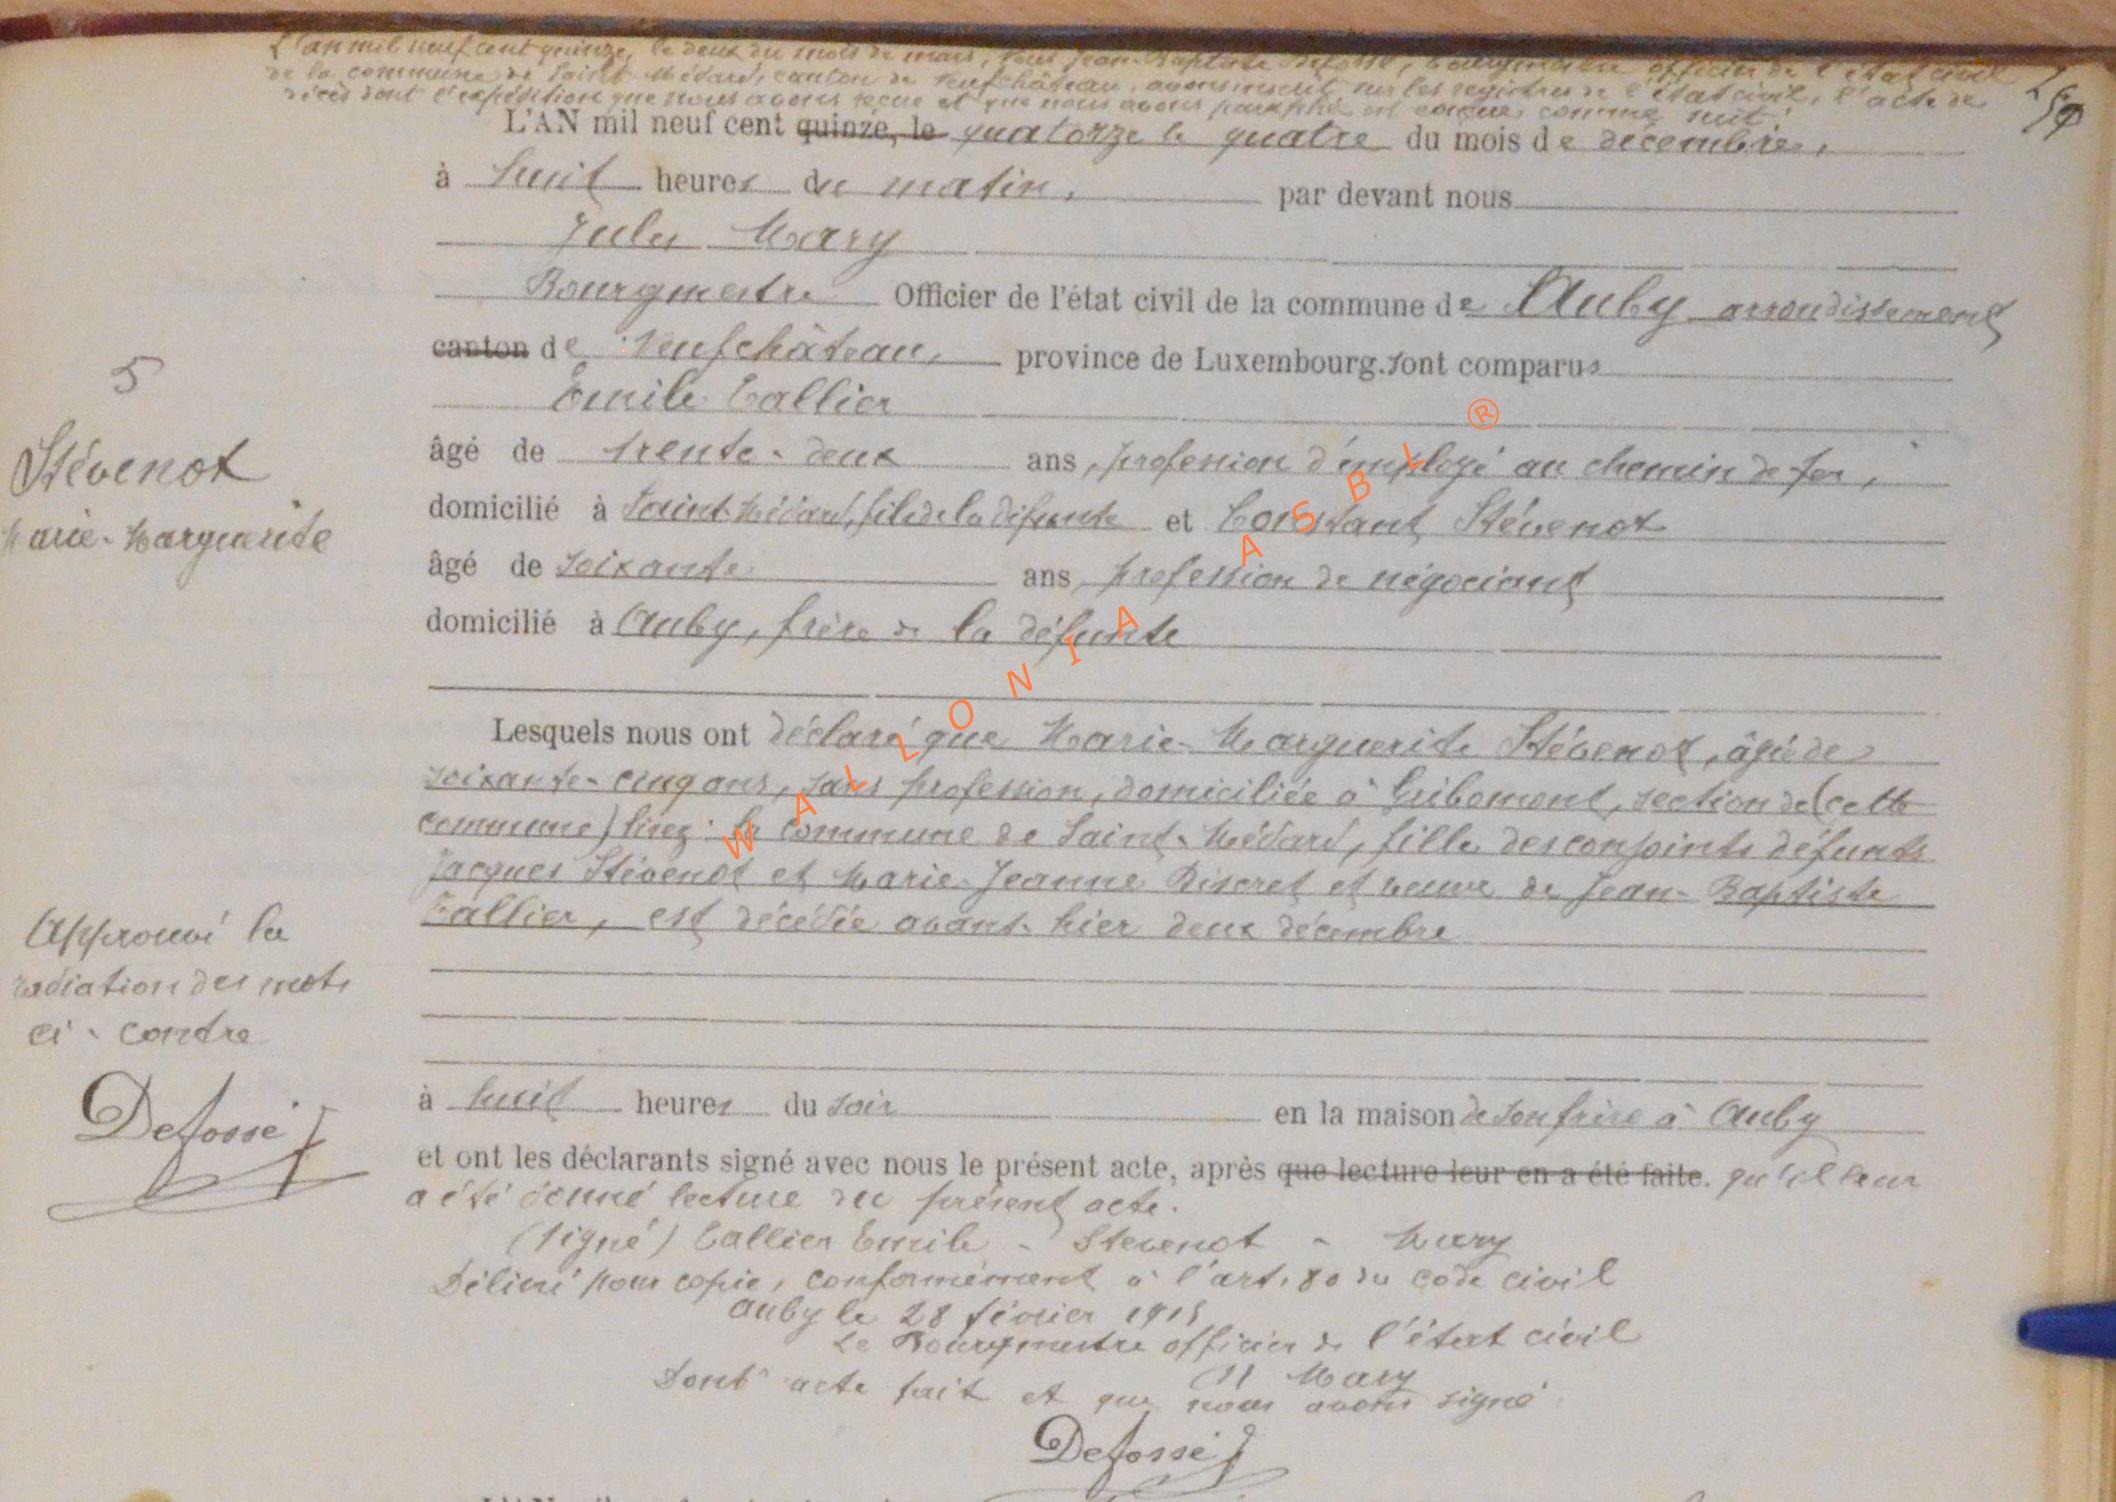 L'an mil neuf cent quinze, le deux du mois de mars, Nous Jean-Baptiste Defossé, bourgmestre officier de l'état civil
de la commune de Saint-Médard, canton de Neufchâteau, avons inscrit sur les registres de l'état civil, l'acte de
décès dont l'expédition que nous avons reçue et que nous avons paraphé est conçue comme suit:
L'AN mil neuf cent quinze, le quatorze le quatre du mois de décembre,
à huit heures du matin, par devant nous
Jules Mary
Bourgmestre Officier de l'état civil de la commune de Auby arrondissement
canton de Neufchâteau, province de Luxembourg. sont comparus
Emile Tallier
âgé de trente-deux ans, profession d'employé au chemin de fer,
domicilié à Saint-Médard, fils de la défunte et Constant Stévenot
âgé de soixante ans, profession de négociant
domicilié à Auby, frère de la défunte
Lesquels nous ont déclaré que Marie-Marguerite Stévenot, âgée de
soixante-cinq ans, sans profession, domiciliée à Gribomont, section de (cette
commune) lisez: la commune de Saint-Médard, fille des conjoints défunts
Jacques Stévenot et Marie-Jeanne Discret et veuve de Jean-Baptiste
Tallier, est décédée avant-hier deux décembre
à huit heures du soir en la maison de son frère à Auby
et ont les déclarants signé avec nous le présent acte, après que lecture leur en a été faite. qu'il leur
a été donné lecture du présent acte.
(signé) Tallier Emile - Stevenot - Mary
Délivré pour copie, conformément à l'art. 80 du code civil
Auby le 28 février 1915
Le Bourgmestre officier de l'état civil
(s) Mary
Dont acte fait et que nous avons signé
Defossé J
5
Stévenot
Marie-Marguerite
Approuvé la
radiation des mots
ci-contre
Defossé J
WALLONIA ASBL ®